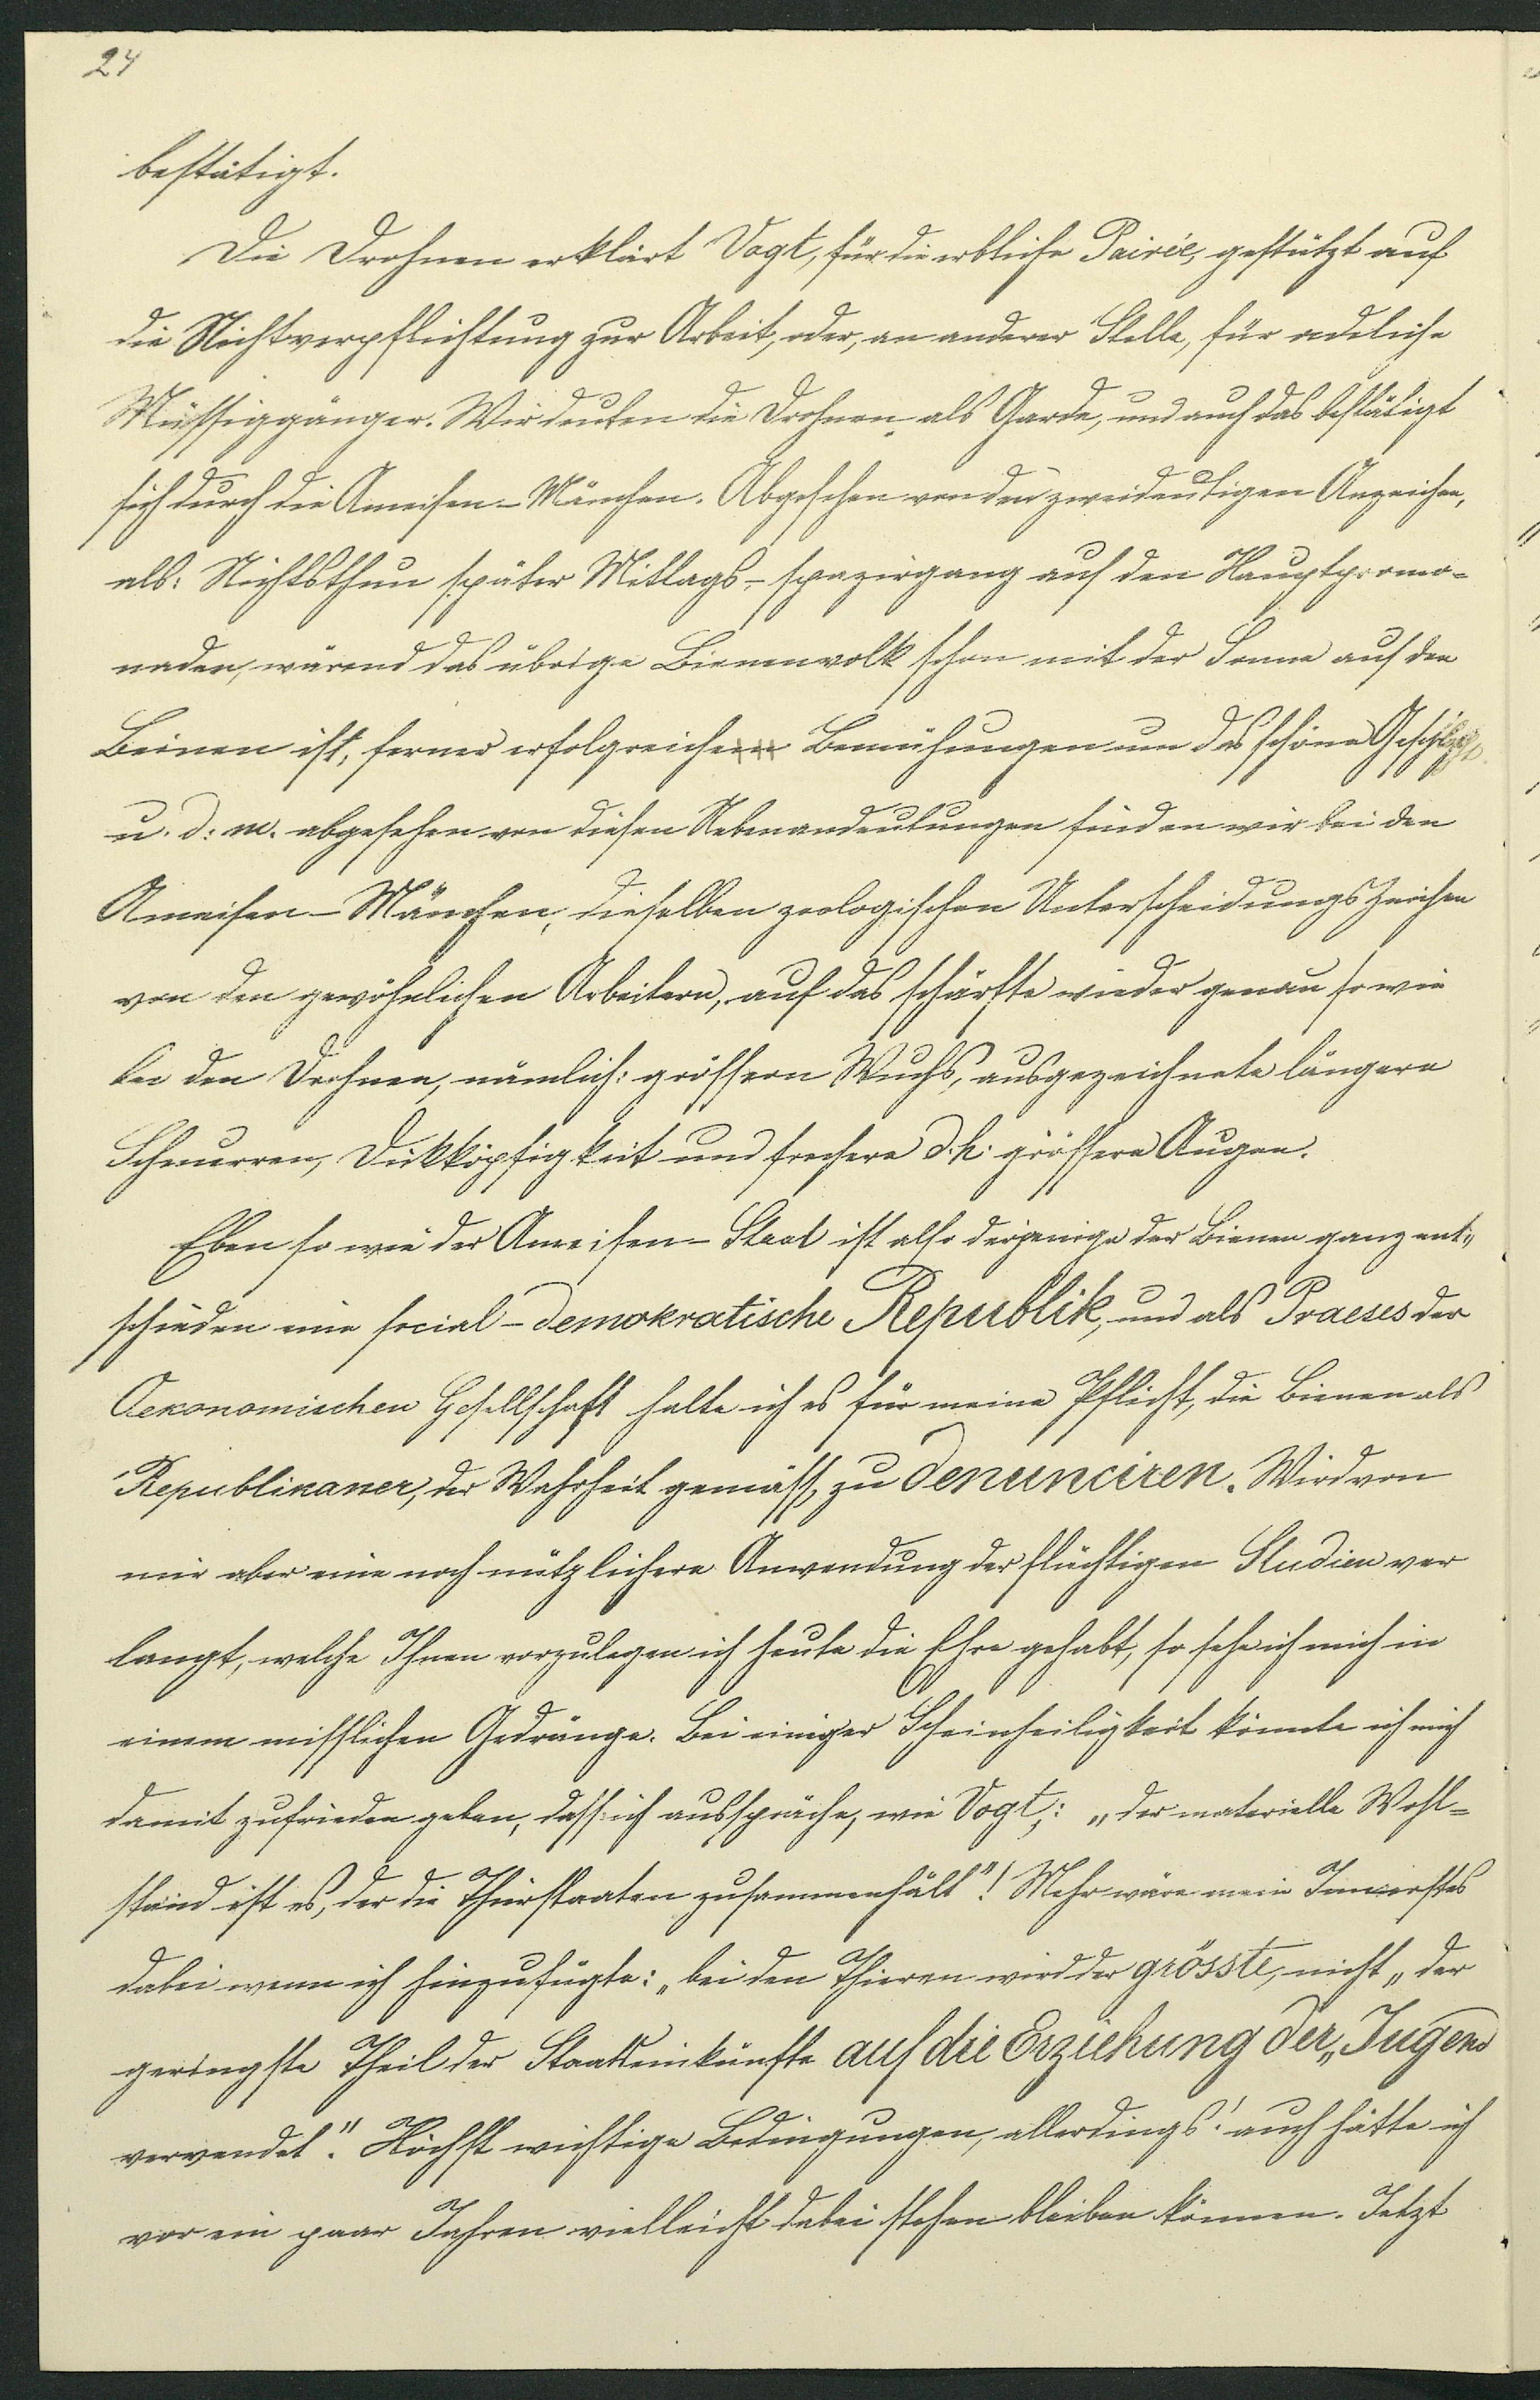 24
bestätigt.
Die Drohnen erklärt Vogt, für die erbliche Pairée, gestützt auf
die Nichtverpflichtung zur Arbeit, oder, an anderer Stelle, für adeliche
Müssiggänger. Wir deuten die Drohnen als Garde, und auch das bestätigt
sich durch die Ameisen-Mänchen. Abgesehen von den zweideutigen Anzeichen,
als: Nichtsthun später Mittags-spazirgang auf den Hauptpromo-
naden, wärend das übrige Bienenvolk schon mit der Sonne auf den
Beinen ist, ferner erfolgreiche Bemühungen um das schöne Geschlecht
u. d. m. abgesehen von diesen Nebenandeutungen finden wir bei den
Ameisen-Mänchen, dieselben zoologischen Unterscheidungs Zeichen
von den gewöhnlichen Arbeitern, auf das schärfste wieder genau so wie
bei den Drohnen, nämlich: grössern Wuchs, ausgezeichnete längere
Schnurren, Dickköpfigkeit und frechere d.h. grössere Augen.
Eben so wie der Ameisen-Staat ist also derjenige der Bienen ganz ent-
schieden eine social-demokratische Republik, und als Praeses der
Oekonomischen Gesellschaft halte ich es für meine Pflicht, die Bienen als
Republikaner, der Wahrheit gemäss, zu denunciren. Wird von
mir aber eine noch nützlichere Anwendung der flüchtigen Studien ver
langt, welche Ihnen vorzulegen ich heute die Ehre gehabt, so sehe ich mich in
einem misslichen Gedränge. Bei einiger Scheinheiligkeit könnte ich mich
damit zufrieden geben, dass ich ausspräche, wie Vogt,: „der materielle Wohl-
stand ist es, der die Thierstaaten zusammenhält"! Mehr wäre mein Innerstes
dabei wenn ich hinzufügte: „bei den Thieren wird der grösste, nicht „der
geringste Theil der Staatseinkünfte auf die Erziehung der „Jugend
verwendet". Höchst wichtige Bedingungen, allerdings! auch hätte ich
vor ein paar Jahren vielleicht dabei stehen bleiben können. Jetzt